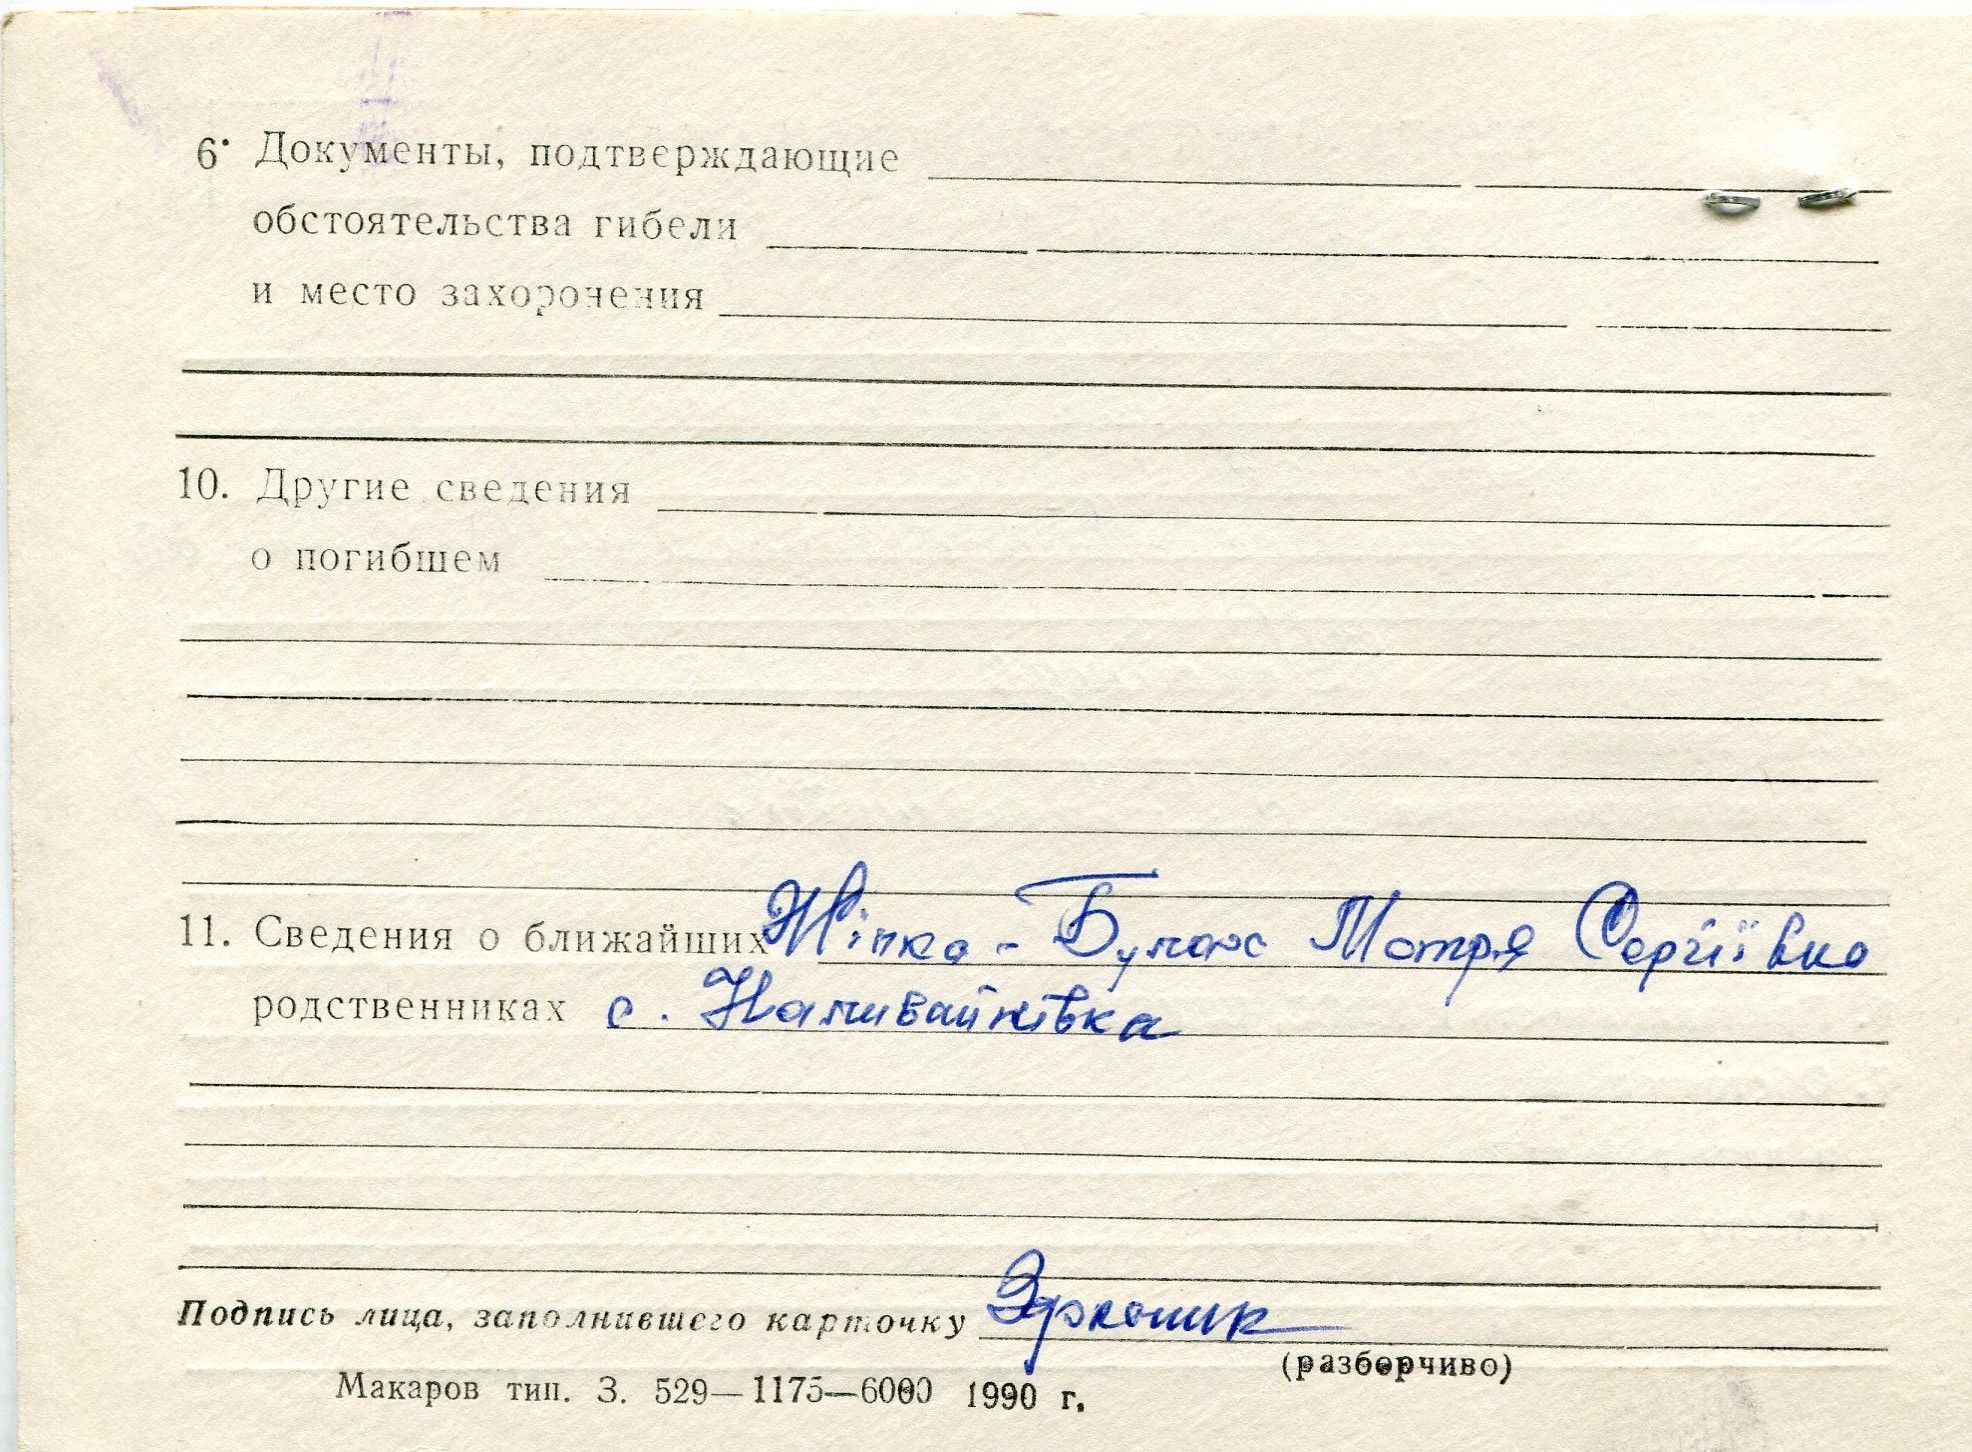 6. Документы, подтверждающие
обстоятельства гибели
и место захоронения
10. Другие сведения
о погибшем
11. Сведения о ближайших Жінка - Мотря Сергіївна
родственниках с. Наливайківка
Подпись лица, заполнившего карточку
(разборчиво)
Макаров тип. З. 529—1175—6000 1990 г.